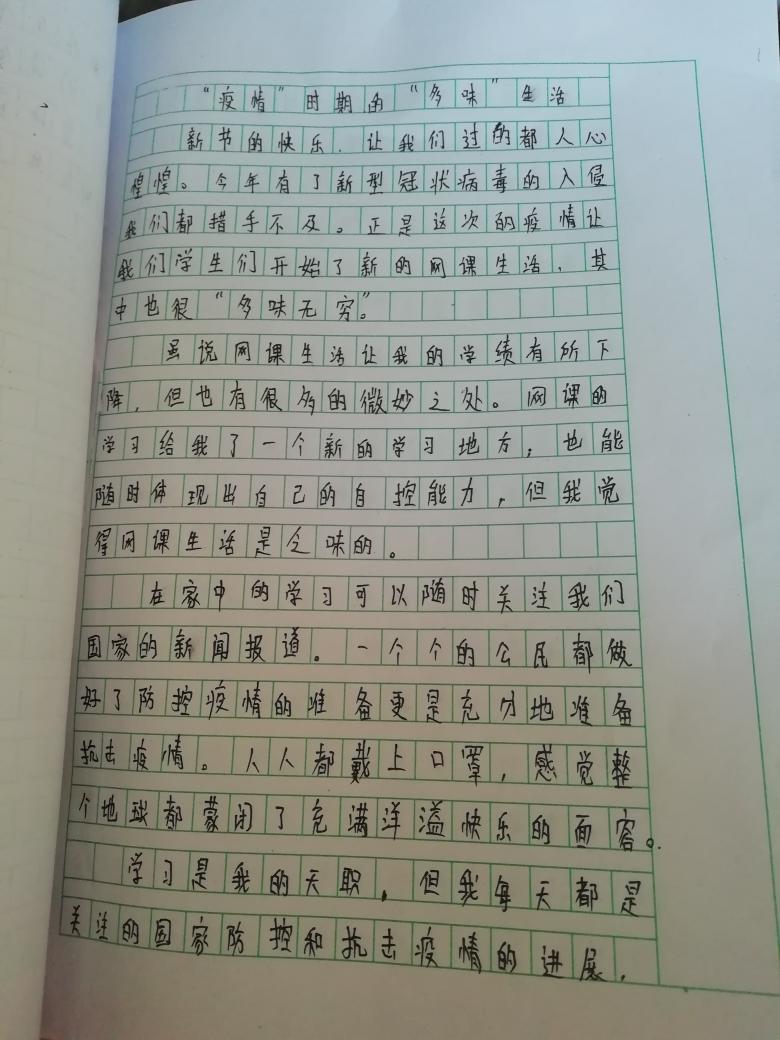 “疫情”时期的“多味”生活
新节的快乐,让我们过的都人心
惶惶。今年有了新型冠状病毒的入侵
我们都措手不及。正是这次的疫情让
我们学生们开始了新的网课生活,其
中也很“多味无穷”。
虽说网课生活让我的学绩有所下
降,但也有很多的微妙之处。网课的
学习给我了一个新的学习地方,也能
随时体现出自己的自控能力,但我觉
得网课生活是乏味的。
在家中的学习可以随时关注我们
国家的新闻报道。一个个的公民都做
好了防控疫情的准备更是充分地准备
抗击疫情。人人都戴上口罩,感觉整
个地球都蒙闭了充满洋溢快乐的面容。
学习是我的天职,但我每天都是
关注的国家防控和抗击疫情的进展,